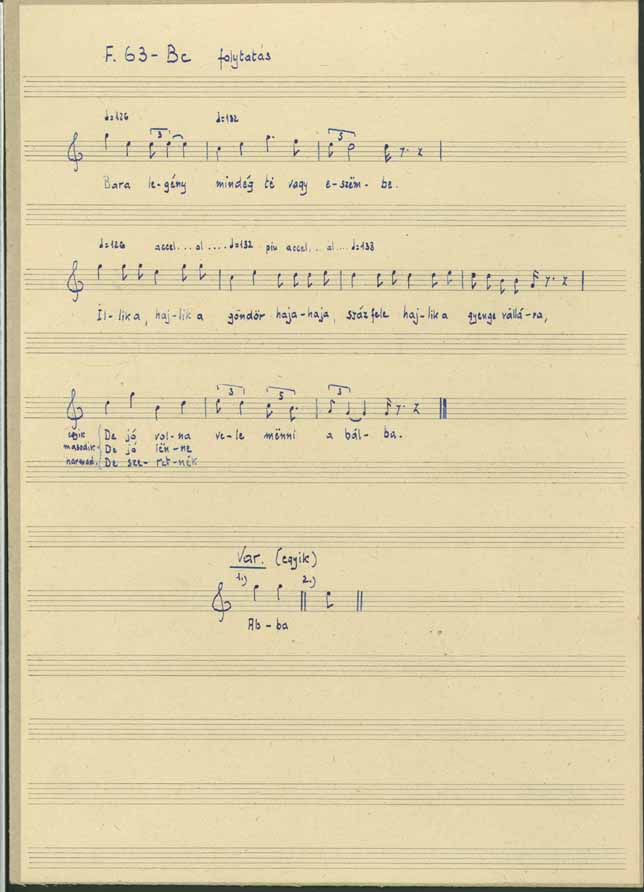 F. 63-Bc folytatás
♩=126 ♩=132
3 5
Bara le-gény mindég té vagy e-szëm-be.
♩=126 accel...al....♩=132 più accel...al....♩=138
Il-lik a, haj-lik a göndör haja-haja, százfele haj-lik a gyenge vállá-ra,
3 5 3
egyik De jó vol-na ve-le mënni a bál-ba.
második De jó lën-ne
harmad. De sze-ret-nék
Var. (egyik)
1.) 2.)
Ab-ba